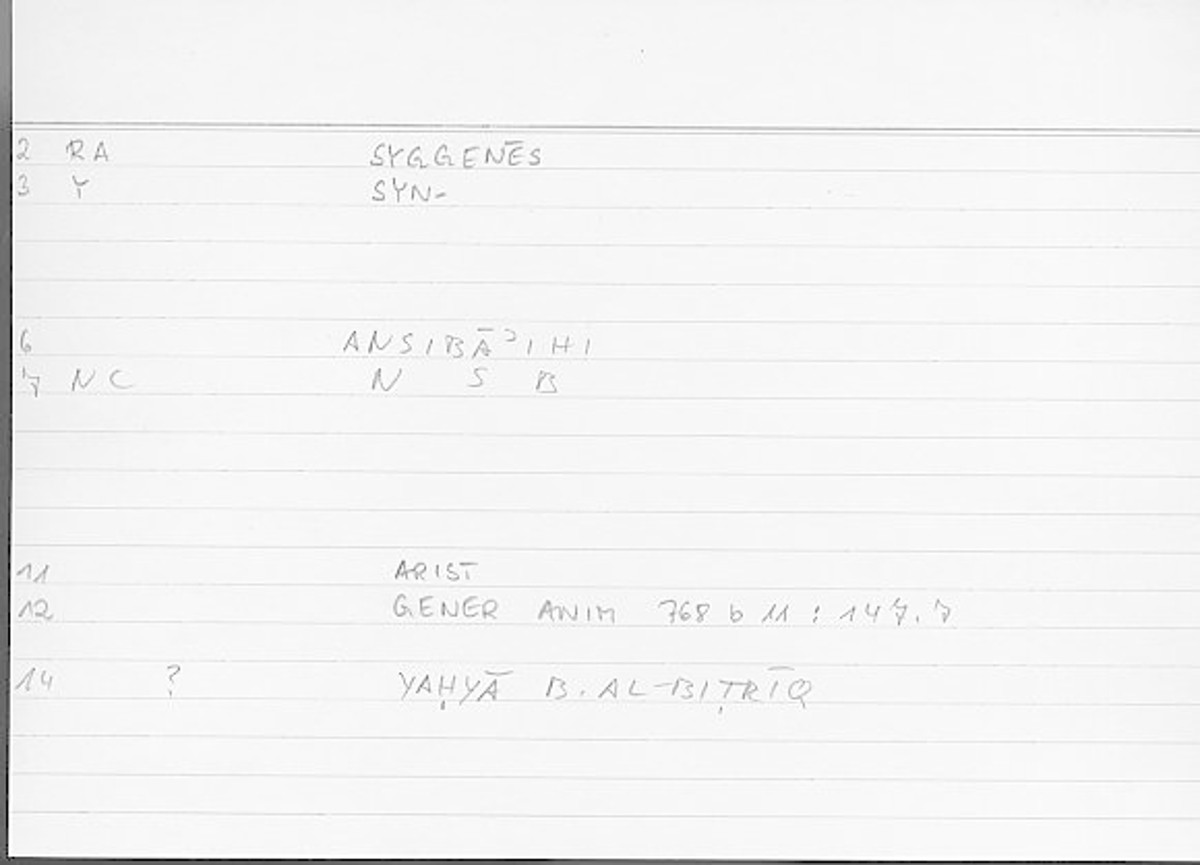 2 RA SYGGENĒS
3 Y SYN-
6 ANSIBĀʾIHI
7 NC N S B
11 ARIST
12 GENER ANIM 768 b 11 : 147.7
14 ? YAḤYĀ B. AL-BIṬRĪQ